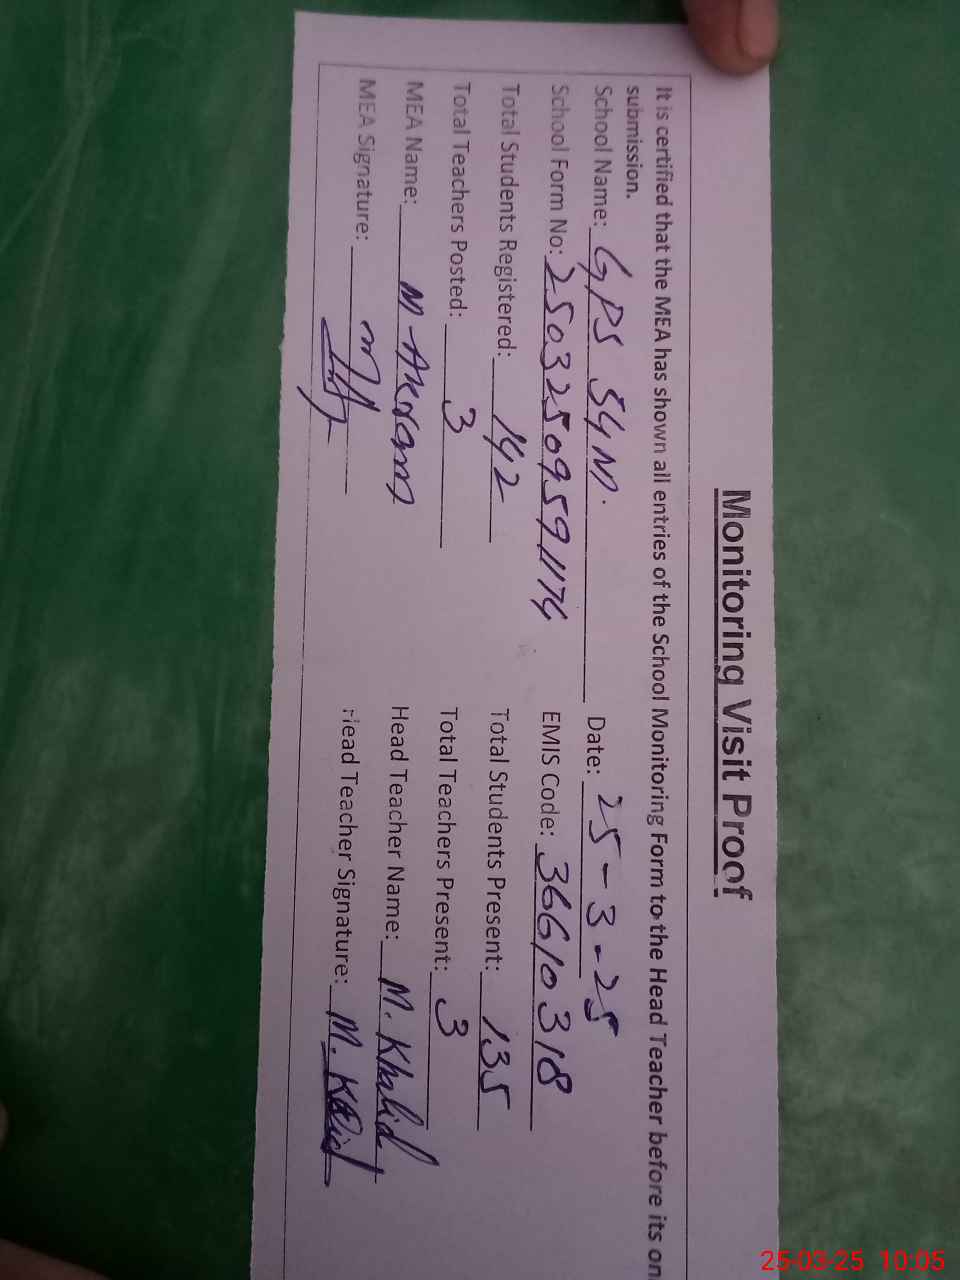 Monitoring Visit Proof
It is certified that the MEA has shown all entries of the School Monitoring Form to the Head Teacher before its on
submission.
School Name: GPS 54 M. Date: 25-3-25
School Form No: 25032509591174 EMIS Code: 36610318
Total Students Registered: 142 Total Students Present: 135
Total Teachers Posted: 3 Total Teachers Present: 3
MEA Name: M Akram Head Teacher Name: M. Khalid
MEA Signature: Head Teacher Signature: M. Khalid
25-03-25 10:05